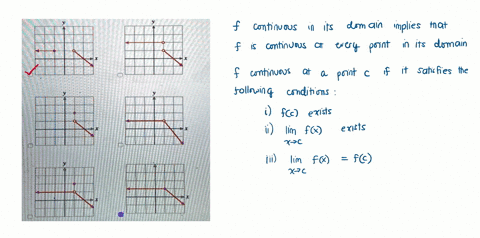 f continuous in its domain implies that
f is continuous at every point in its domain
f continuous at a point c if it satisfies the
following conditions :
i) f(c) exists
ii) lim f(x) exists
x→c
iii) lim f(x) = f(c)
x→c
y
y
x
x
y
y
x
x
y
y
x
x